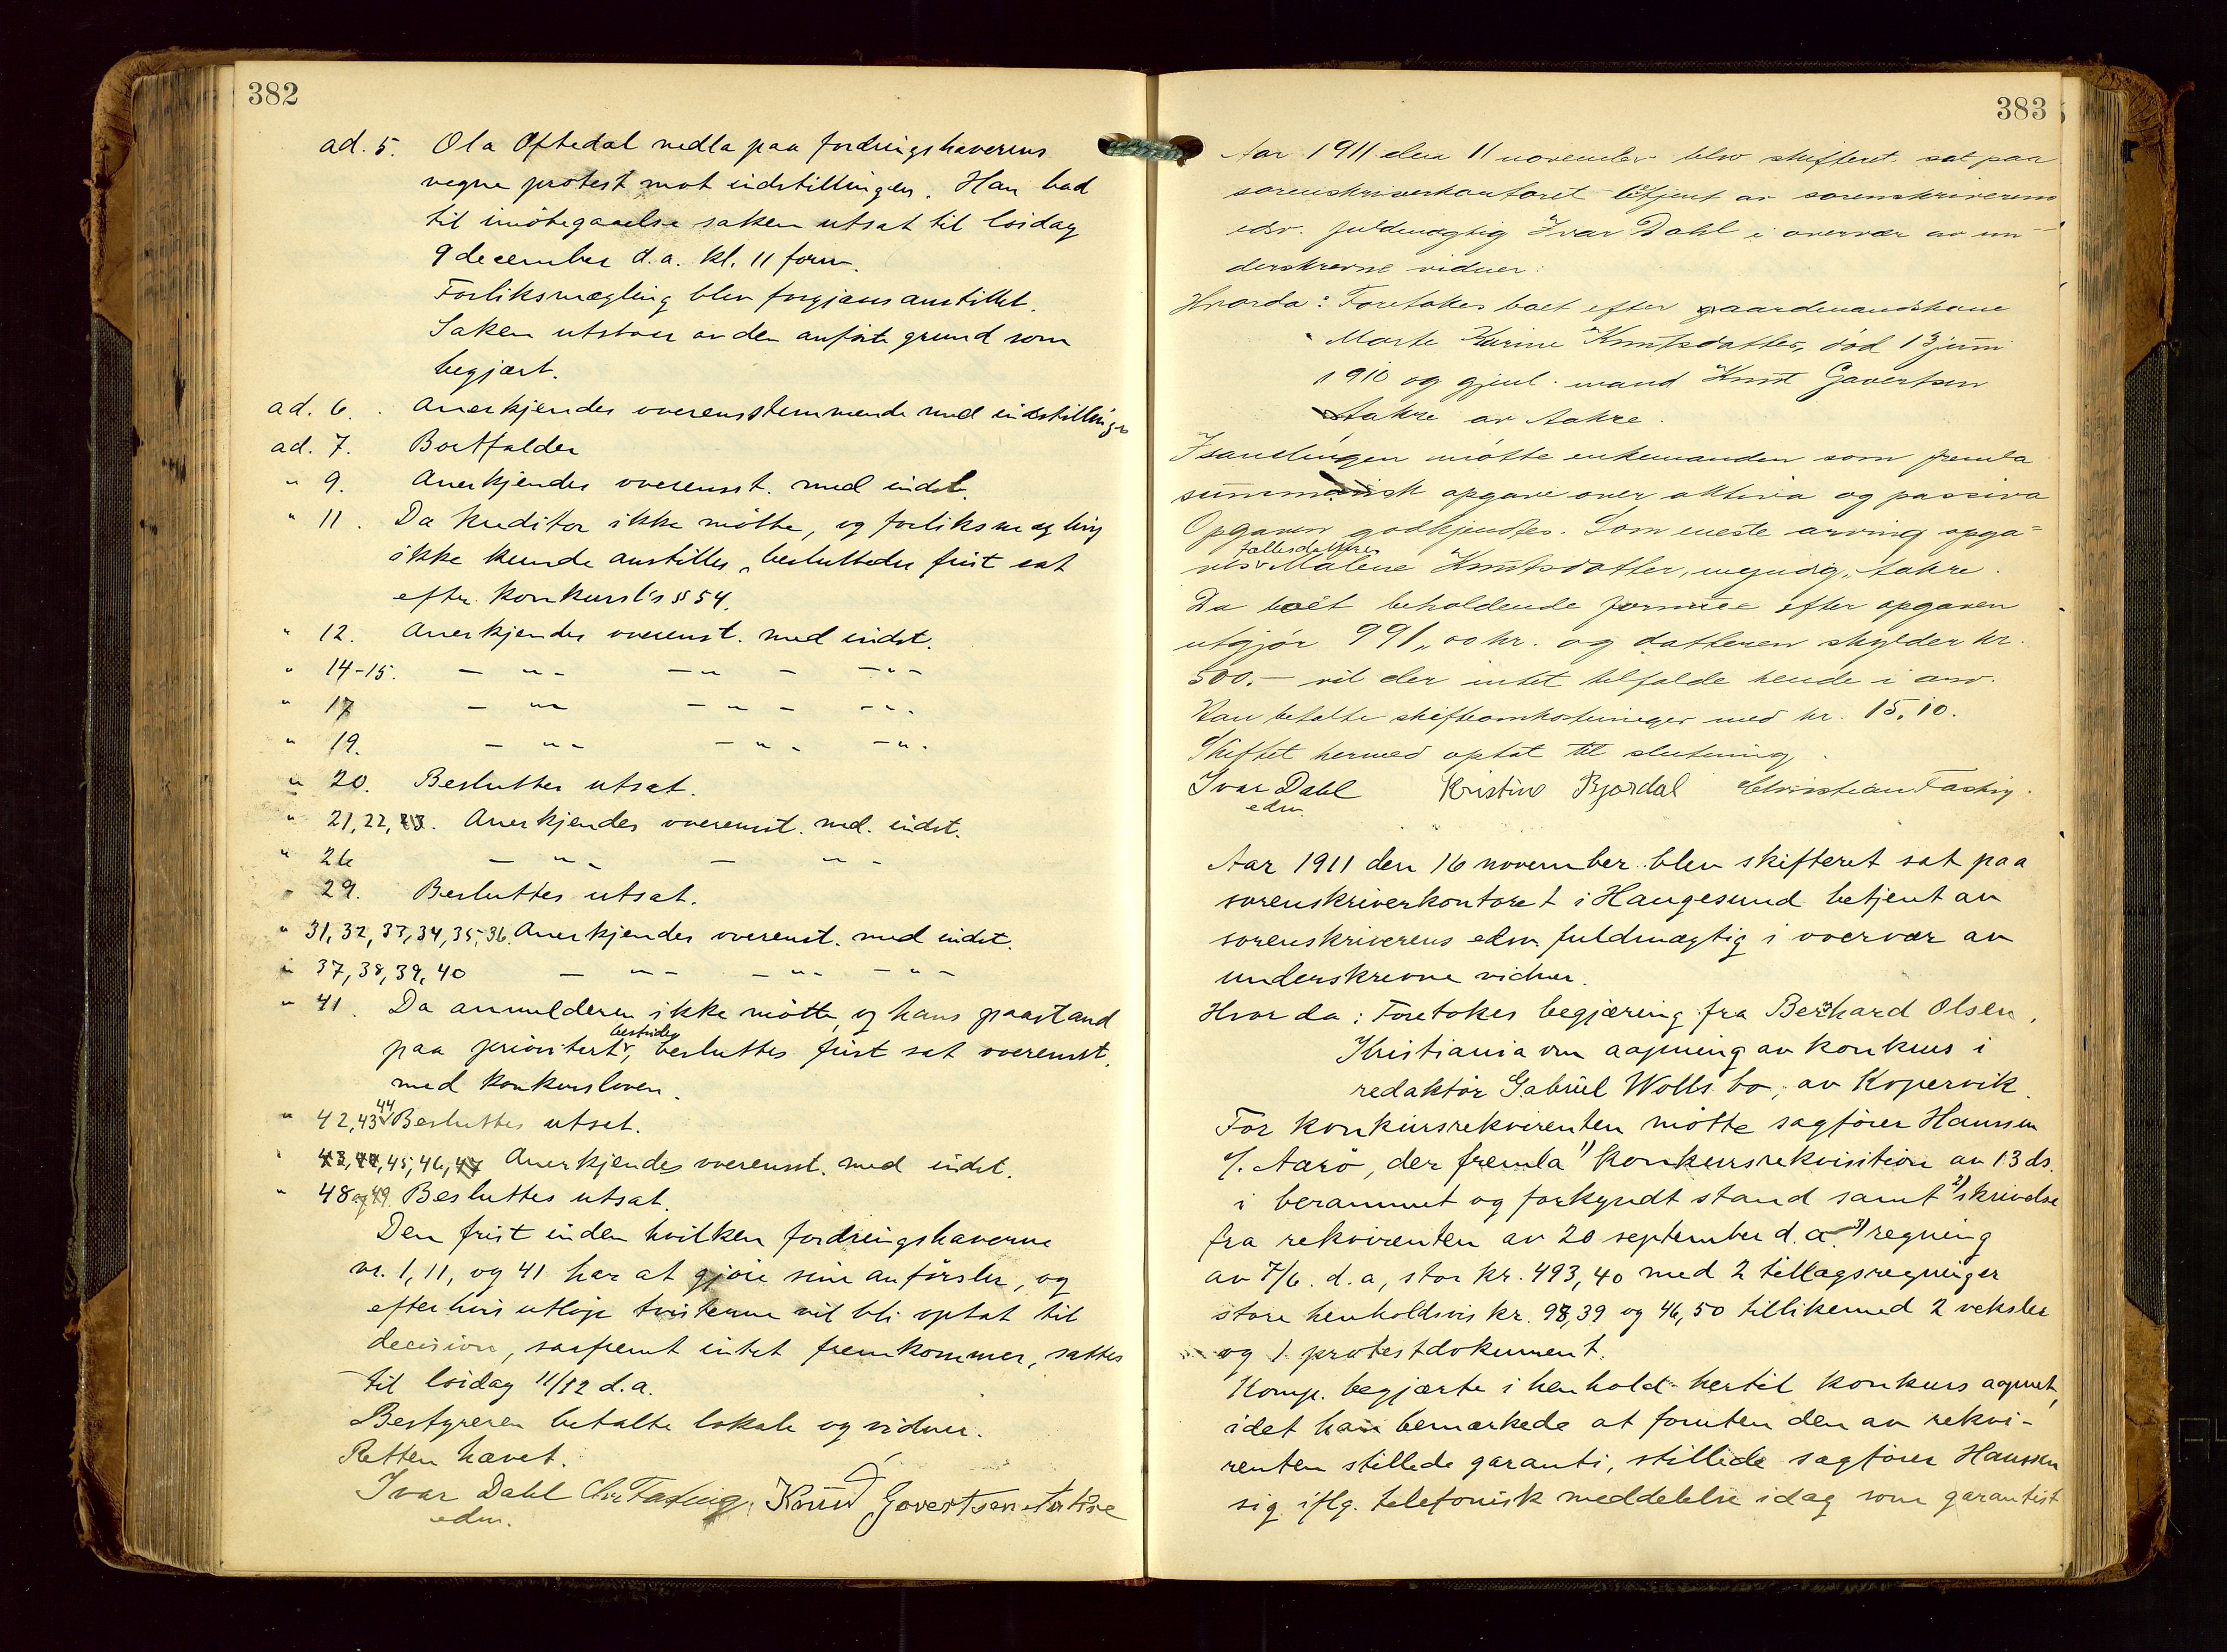 382
ad. 5. Ola Oftedal nedla paa fordringshaverens
vegne protest mot indstillingen. Han bad
til imøtegaaelse saken utsat til løidag
9 december d.a. kl. 11 form.
Forliksmægling blev forgjæves anstillet.
Saken utstaar av den anførte grund som
begjært.
ad. 6. Anerkjendes overensstemmende med indstillingen
ad. 7. Bortfalder
" 9. Anerkjendes overensst. med indst.
" 11. Da kreditor ikke møtte, og forliksmægling
ikke kunde anstilles, besluttedes frist sat
efter konkursl's § 54.
" 12. Anerkjendes overenst. med indst.
" 14-15. - " - - " - - " -
" 17 - " - - " - - " -
" 19. - " - - " - - " -
" 20. Besluttes utsat.
" 21, 22, 23. Anerkjendes overensst. med. indst.
" 26 - " - - " -
" 29. Besluttes utsat.
" 31, 32, 33, 34, 35, 36. Anerkjendes overenst. med indst.
" 37, 38, 39, 40 - " - - " - - " -
" 41. Da anmelderen ikke møtte, og hans paastand
paa prioritert bestrides, besluttes frist sat overensst.
med konkursloven.
" 42, 43, 44 Besluttes utsat.
" 43, 44, 45, 46, 47 Anerkjendes overensst. med indst.
" 48 og 49. Besluttes utsat.
Den frist inden hvilken fordringshaverne
nr. 1, 11, og 41 har at gjøre sine anførsler, og
efter hvis utløp tvisterne vil bli optat til
decision, saafremt intet fremkommer, sattes
til løidag 11/12 d.a.
Bestyreren betalte lokale og vidner.
Retten hævet.
Ivar Dahl Chr Fasting. Knud Govertsen Aakre
edsv.
383
Aar 1911 den 11 november blev skifteret sat paa
sorenskriverkontoret betjent av sorenskriverens
edsv. fuldmægtig Ivar Dahl i overvær av un-
derskrevne vidner:
Hvorda: Foretokes boet efter gaardmandskone
Marte Karine Knutsdatter, død 13 juni
1910 og gjenl. mand Knut Govertsen
Aakre av Aakre.
I samlingen møtte enkemanden som fremla
summarisk opgave over aktiva og passiva
Opgaven godkjendtes. Som eneste arving opga-
ves fællesdatteren Malene Knutsdatter, myndig, Aakre.
Da boet beholdende formue efter opgaven
utgjør 991,00 kr. og datteren skylder kr.
500.- vil der intet tilfalde hende i arv.
Han betalte skifteomkostninger med kr. 15,10.
Skiftet hermed optat til slutning.
Ivar Dahl Kristine Bjordal Christian Fasting.
edsv.
Aar 1911 den 16 november blev skifteret sat paa
sorenskriverkontoret i Haugesund betjent av
sorenskriverens edsv. fuldmægtig i overvær av
underskrevne vidner.
Hvor da: Foretokes begjæring fra Bernhard Olsen,
Kristiania om aapning av konkurs i
redaktør Gabriel Wolls bo, av Kopervik.
For konkursrekvirenten møtte sagfører Haussen
v/. Aarø, der fremla 1) konkursrekvisition av 13 ds.
i berammet og forkyndt stand samt 2) skrivelse
fra rekvirenten av 20 september d.a. 3) regning
av 7/6. d.a, stor kr. 493,40 med 2 tillægsregninger
store henholdsvis kr. 98,39 og 46,50 tillikemed 2 veksler
og 1 protestdokument.
Komp. begjærte i henhold hertil konkurs aapnet,
idet han bemærkede at foruten den av rekvi-
renten stillede garanti, stillede sagfører Haussen
sig iflg. telefonisk meddelelse idag som garantist